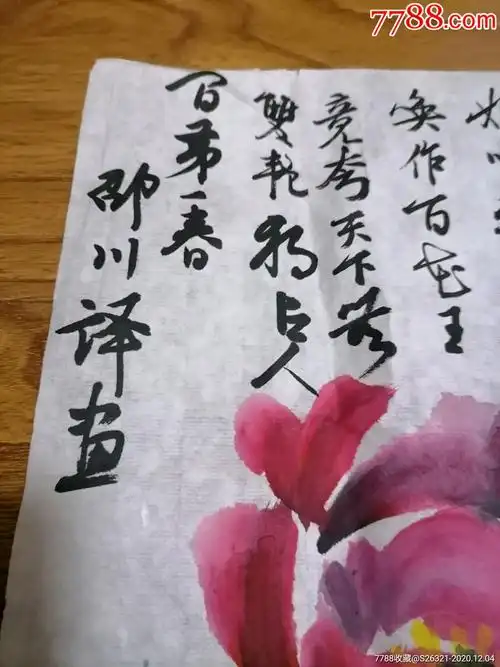 7788.com
唤作百花王
竞夸天下无
雙艳独占人
间第一春
邵川译画
7788收藏@S26321-2020.12.04